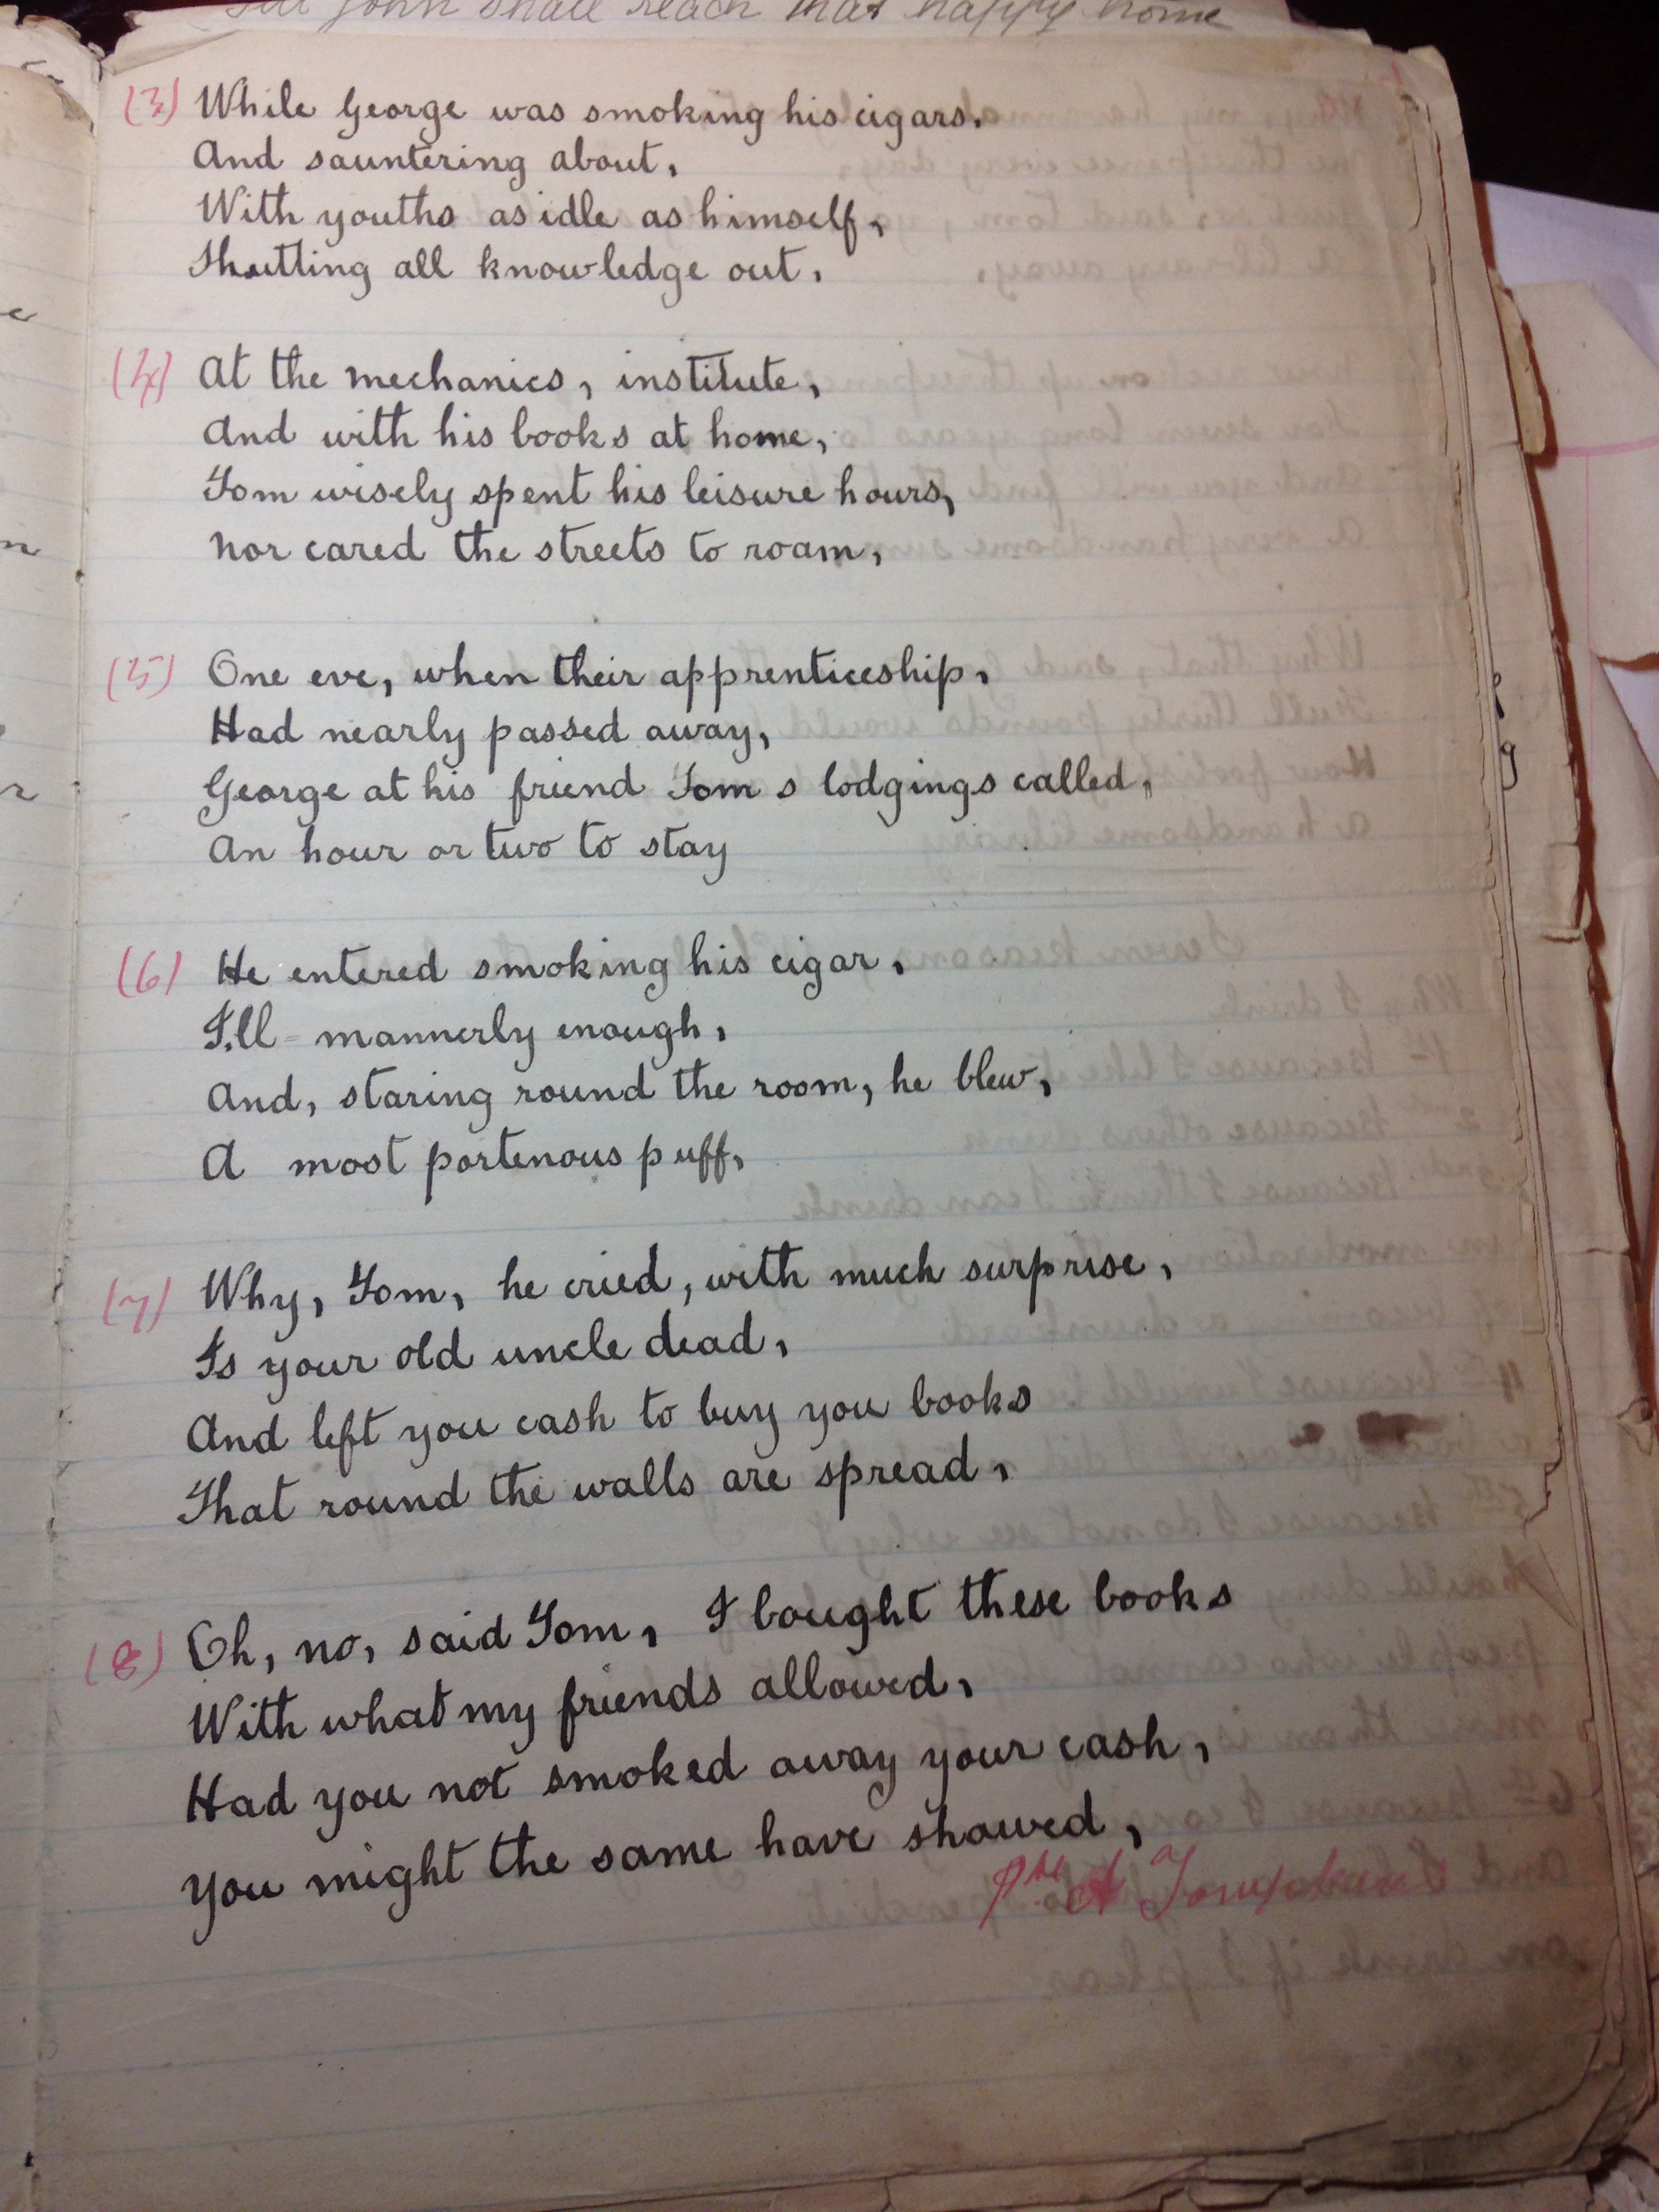 John shall reach that happy home
(3) While George was smoking his cigars,
And sauntering about,
With youths as idle as himself,
Shutting all knowledge out,
(4) At the mechanics, institute,
And with his books at home,
Tom wisely spent his leisure hours,
Nor cared the streets to roam,
(5) One eve, when their apprenticeship,
Had nearly passed away,
George at his friend Tom s lodgings called,
An hour or two to stay
(6) He entered smoking his cigar,
Ill-mannerly enough,
And, staring round the room, he blew,
A most portenous puff,
(7) Why, Tom, he cried, with much surprise,
Is your old uncle dead,
And left you cash to buy you books
That round the walls are spread,
(8) Oh, no, said Tom, I bought these books
With what my friends allowed,
Had you not smoked away your cash,
You might the same have showed,
Pte A Tompkins